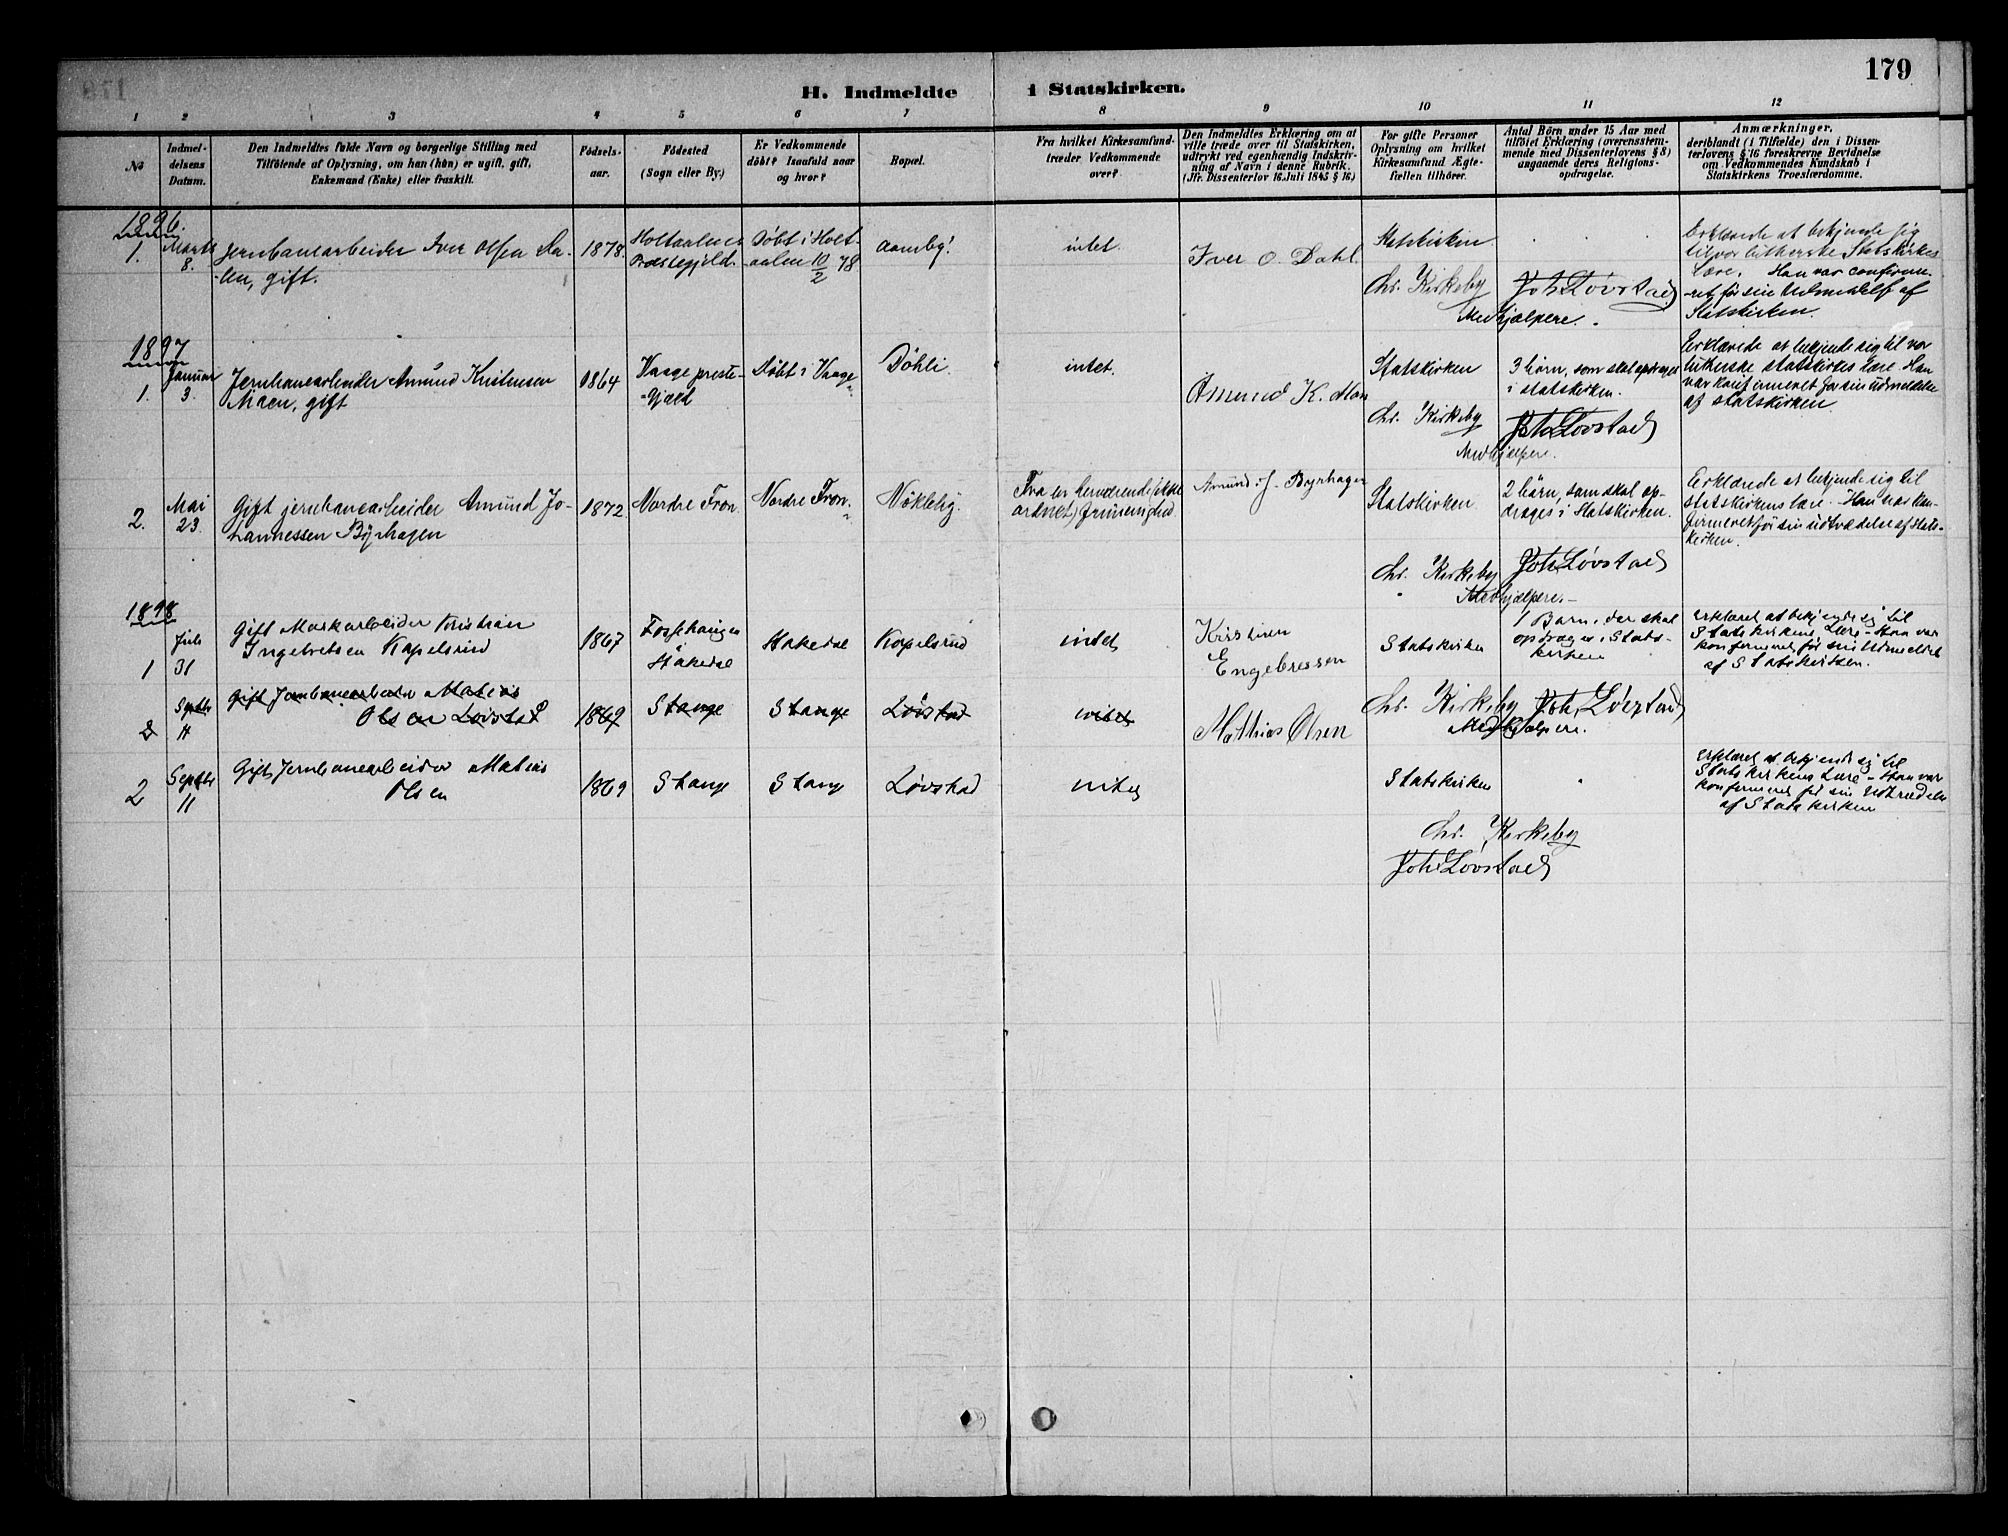 179
H. Indmeldte i Statskirken.
1 2 3 4 5 6 7 8 9 10 11 12
No
Indmel-
delsens
Datum.
Den Indmeldtes fulde Navn og borgerlige Stilling med
Tilföiende af Oplysning, om han (hun) er ugift, gift,
Enkemand (Enke) eller fraskilt.
Födsels-
aar.
Födested
(Sogn eller By.)
Er Vedkommende
döbt? Isaafald naar
og hvor?
Bopæl.
Fra hvilket Kirkesamfund
træder Vedkommende
over?
Den Indmeldtes Erklæring om at
ville træde over til Statskirken,
udtrykt ved egenhændig Indskriv-
ning af Navn i denne Rubrik.
(Jfr. Dissenterlov 16. Juli 1845 § 16)
For gifte Personer
Oplysning om hvilket
Kirkesamfund Ægte-
fællen tilhörer.
Antal Börn under 15 Aar med
tilföiet Erklæring (overensstem-
mende med Dissenterlovens § 8)
angaaende deres Religions-
opdragelse.
Anmærkninger,
deriblandt (i Tilfælde) den i Dissen-
terlovens § 16 foreskrevne Bevidnelse
om Vedkommendes Kundskab i
Statskirkens Troeslærdomme.
1896.
1.
Marts
8.
Jernbanearbeider Iver Olsen Da-
len, gift.
1878.
Holtaalens
Præstegjeld.
Döbt i Holt-
aalen 10/2 78
Aamby!
intet
Iver O. Dahl
Statskirken
Erklærede at bekjende sig
til vor lutherske Statskirkes
Lære. Han var confirme-
ret før sin Udmeldelse af
Statskirken.
Chr. Kirkeby Joh. Løvstad
Medhjælpere.
1897
1.
Januar
3.
Jernbanearbeider Amund Kristensen
Moen, gift
1864
Vaage preste-
gjeld
Döbt i Vaage
Döhli
intet.
Amund K. Mon
Statskirken
3 börn, som skal opdrages
i statskirken.
Erklærede at bekjende sig til vor
lutherske statskirkes lære. Han
var konfirmeret før sin udmeldelse
af statskirken
Chr. Kirkeby Joh. Løvstad
Medhjælpere.
2.
Mai
23.
Gift jernbanearbeider Amund Jo-
hannessen Byrhagen
1872.
Nordre Fron.
Nordre Fron.
Nökleby.
Fra en herværende (ikke
ordnet) frimenighed
Amund J. Byrhagen
Statskirken
2 börn, som skal op-
drages i Statskirken.
Erklærede at bekjende sig til
statskirkens lære. Han var kon-
firmeret før sin udtrædelse af stats-
kirken.
Chr. Kirkeby Joh. Løvstad
Medhjælpere.
1898
1
Juli
31
Gift Markarbeider Kristian
Ingebretsen Kapelsrud
1867
Hakedal
Hakedal
Kapelsrud
intet
Kristiren
Engebressen
Statskirken
1 Barn, der skal
opdrages i Stats-
kirken
Erklæret at bekjende sig til
Statskirkens Lære - Han var
konfirmeret før sin Udmeldelse
af Statskirken.
2
Septbr
11
Gift Jernbanearbeider Matias
Olsen Løvstad
1869
Stange
Stange
Løvstad
intet
Mathias Olsen
Chr. Kirkeby Joh. Løvstad
Medhjælpere.
2
Septbr
11
Gift Jernbanearbeider Matias
Olsen
1869
Stange
Stange
Løvstad
intet
Statskirken
Erklæret at bekjende sig til
Statskirkens Lære - Han var
konfirmeret før sin Udtrædelse
af Statskirken
Chr. Kirkeby
Joh. Løvstad